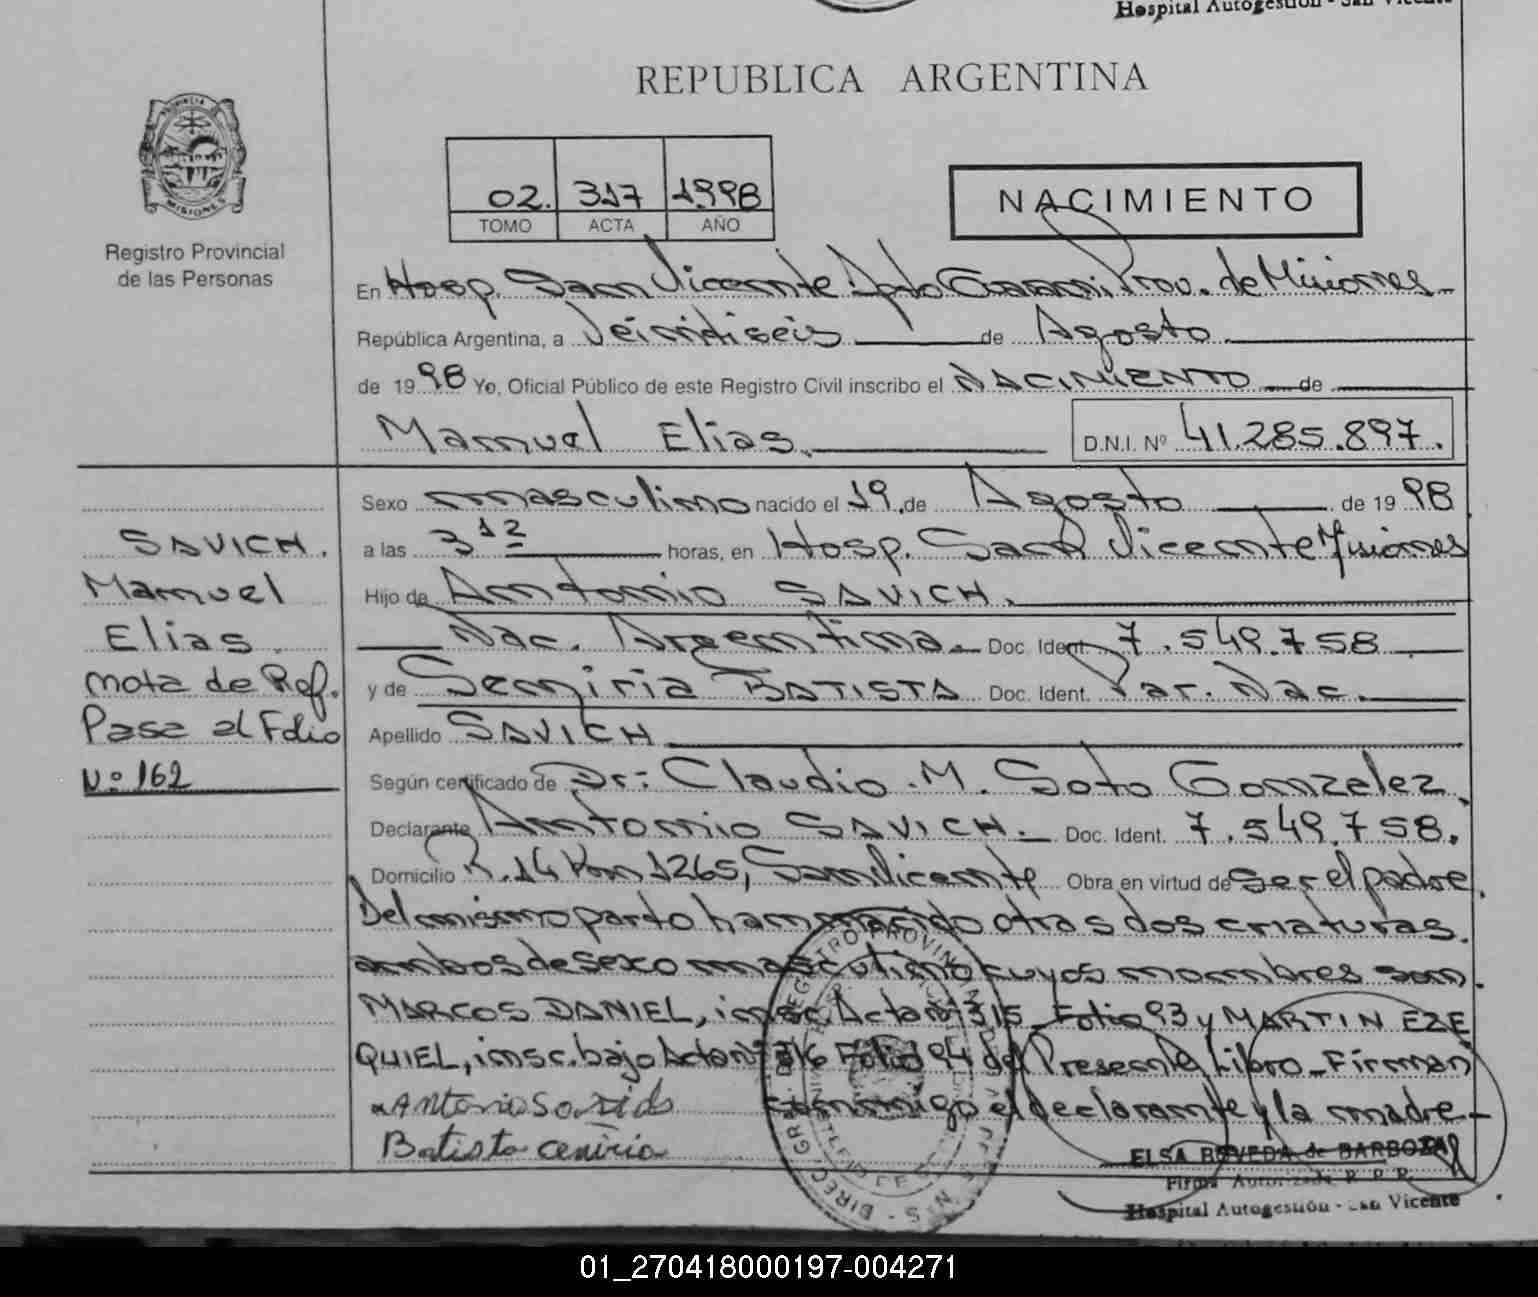 Hospital Autogestión - San Vicente
REPUBLICA ARGENTINA
PROVINCIA
MISIONES
Registro Provincial
de las Personas
02. 317 1998
TOMO ACTA AÑO
NACIMIENTO
En Hosp. San Vicente Dpto Guaraní, Prov. de Misiones
República Argentina, a Veintiseis de Agosto
de 1998 Yo, Oficial Público de este Registro Civil inscribo el NACIMIENTO de
Manuel Elias. D.N.I. Nº 41.285.897.
Sexo masculino nacido el 19 de Agosto de 1998
a las 3 12 horas, en Hosp. San Vicente Misiones
Hijo de Antonio SAVICH.
Nac. Argentina. Doc. Ident. 7.549.758
y de Seniria BATISTA Doc. Ident. Par. Nac.
Apellido SAVICH
Según certificado de Dr: Claudio M. Soto Gonzalez.
Declarante Antonio SAVICH. Doc. Ident. 7.549.758.
Domicilio R. 14 Km 1265, San Vicente Obra en virtud de ser el padre.
Del mismo parto han nacido otras dos criaturas.
ambos de sexo masculino cuyos nombres son.
MARCOS DANIEL, insc. Acta nº 315 Folio 93 y MARTIN EZE
QUIEL, insc. bajo Acta nº 316 Folio 94 del Presente Libro - Firman
conmigo el declarante y la madre -
Antonio
Batista ceniria
ELSA BOVEDA de BARBOZA
Firma Autorizada R. P. P.
Hospital Autogestión - San Vicente
SAVICH.
Manuel
Elias.
nota de Ref.
Pasa al Folio
Nº 162
01_270418000197-004271